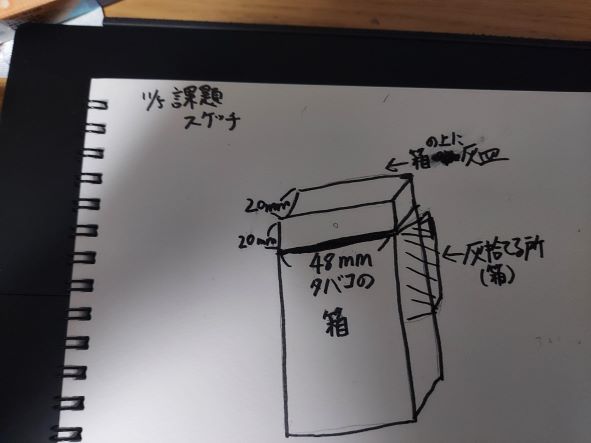 11/5 課題
スケッチ
の上に
←箱 灰皿
20mm
20mm
48mm
タバコの
箱
←灰捨てる所
(箱)